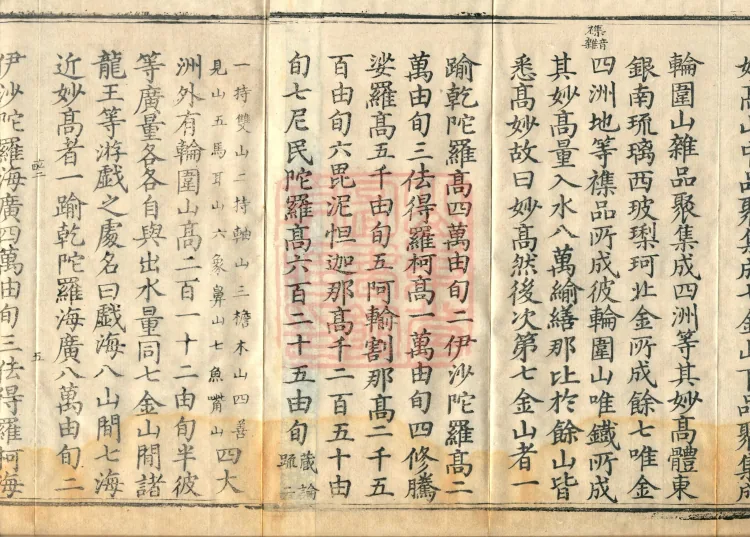 妙高山中品聚集成七金山下品聚集成
輪圍山雜品聚集成四洲等其妙高體東
銀南琉璃西玻瓈珂北金所成餘七唯金
襍音雜
四洲地等襍品所成彼輪圍山唯鐵所成
其妙髙量入水八萬緰繕那比於餘山皆
悉髙妙故曰妙髙然後次第七金山者一
踰乾陀羅髙四萬由旬二伊沙陀羅髙二
萬由旬三佉得羅柯高一萬由旬四修騰
娑羅髙五千由旬五阿輸割那髙二千五
百由旬六毘泥怛迦那髙千二百五十由
旬七尼民陀羅髙六百二十五由旬
藏論
䟽
一持雙山二持軸山三檐木山四善
見山五馬耳山六象鼻山七魚觜山
四大
洲外有輪圍山髙二百一十二由旬半彼
等廣量各各自與出水量同七金山間諸
龍王等游戲之處名曰戲海八山間七海
近妙髙者一踰乾陀羅海廣八萬由旬二
五
伊沙陀羅海廣四萬由旬三佉得羅柯海